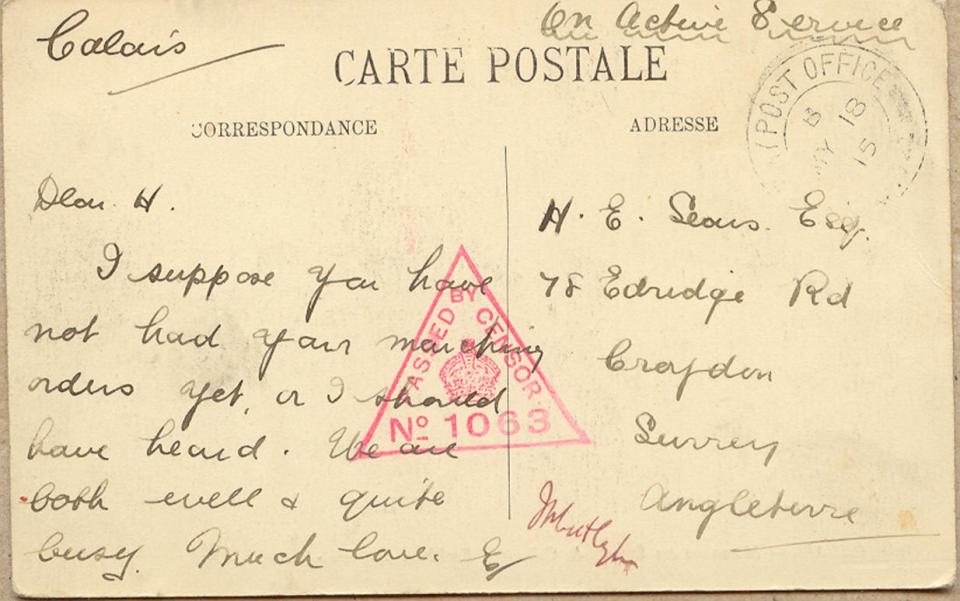 Calais
On Active Service
CARTE POSTALE
CORRESPONDANCE
ADRESSE
POST OFFICE
B
MY 18
15
Dear H.
I suppose you have
not had your marching
orders yet, or I should
have heard. We are
both well & quite
busy. Much love. E
H. E. Sears. Esq.
78 Edridge Rd
Croydon
Surrey
Angleterre
PASSED BY CENSOR
No 1063